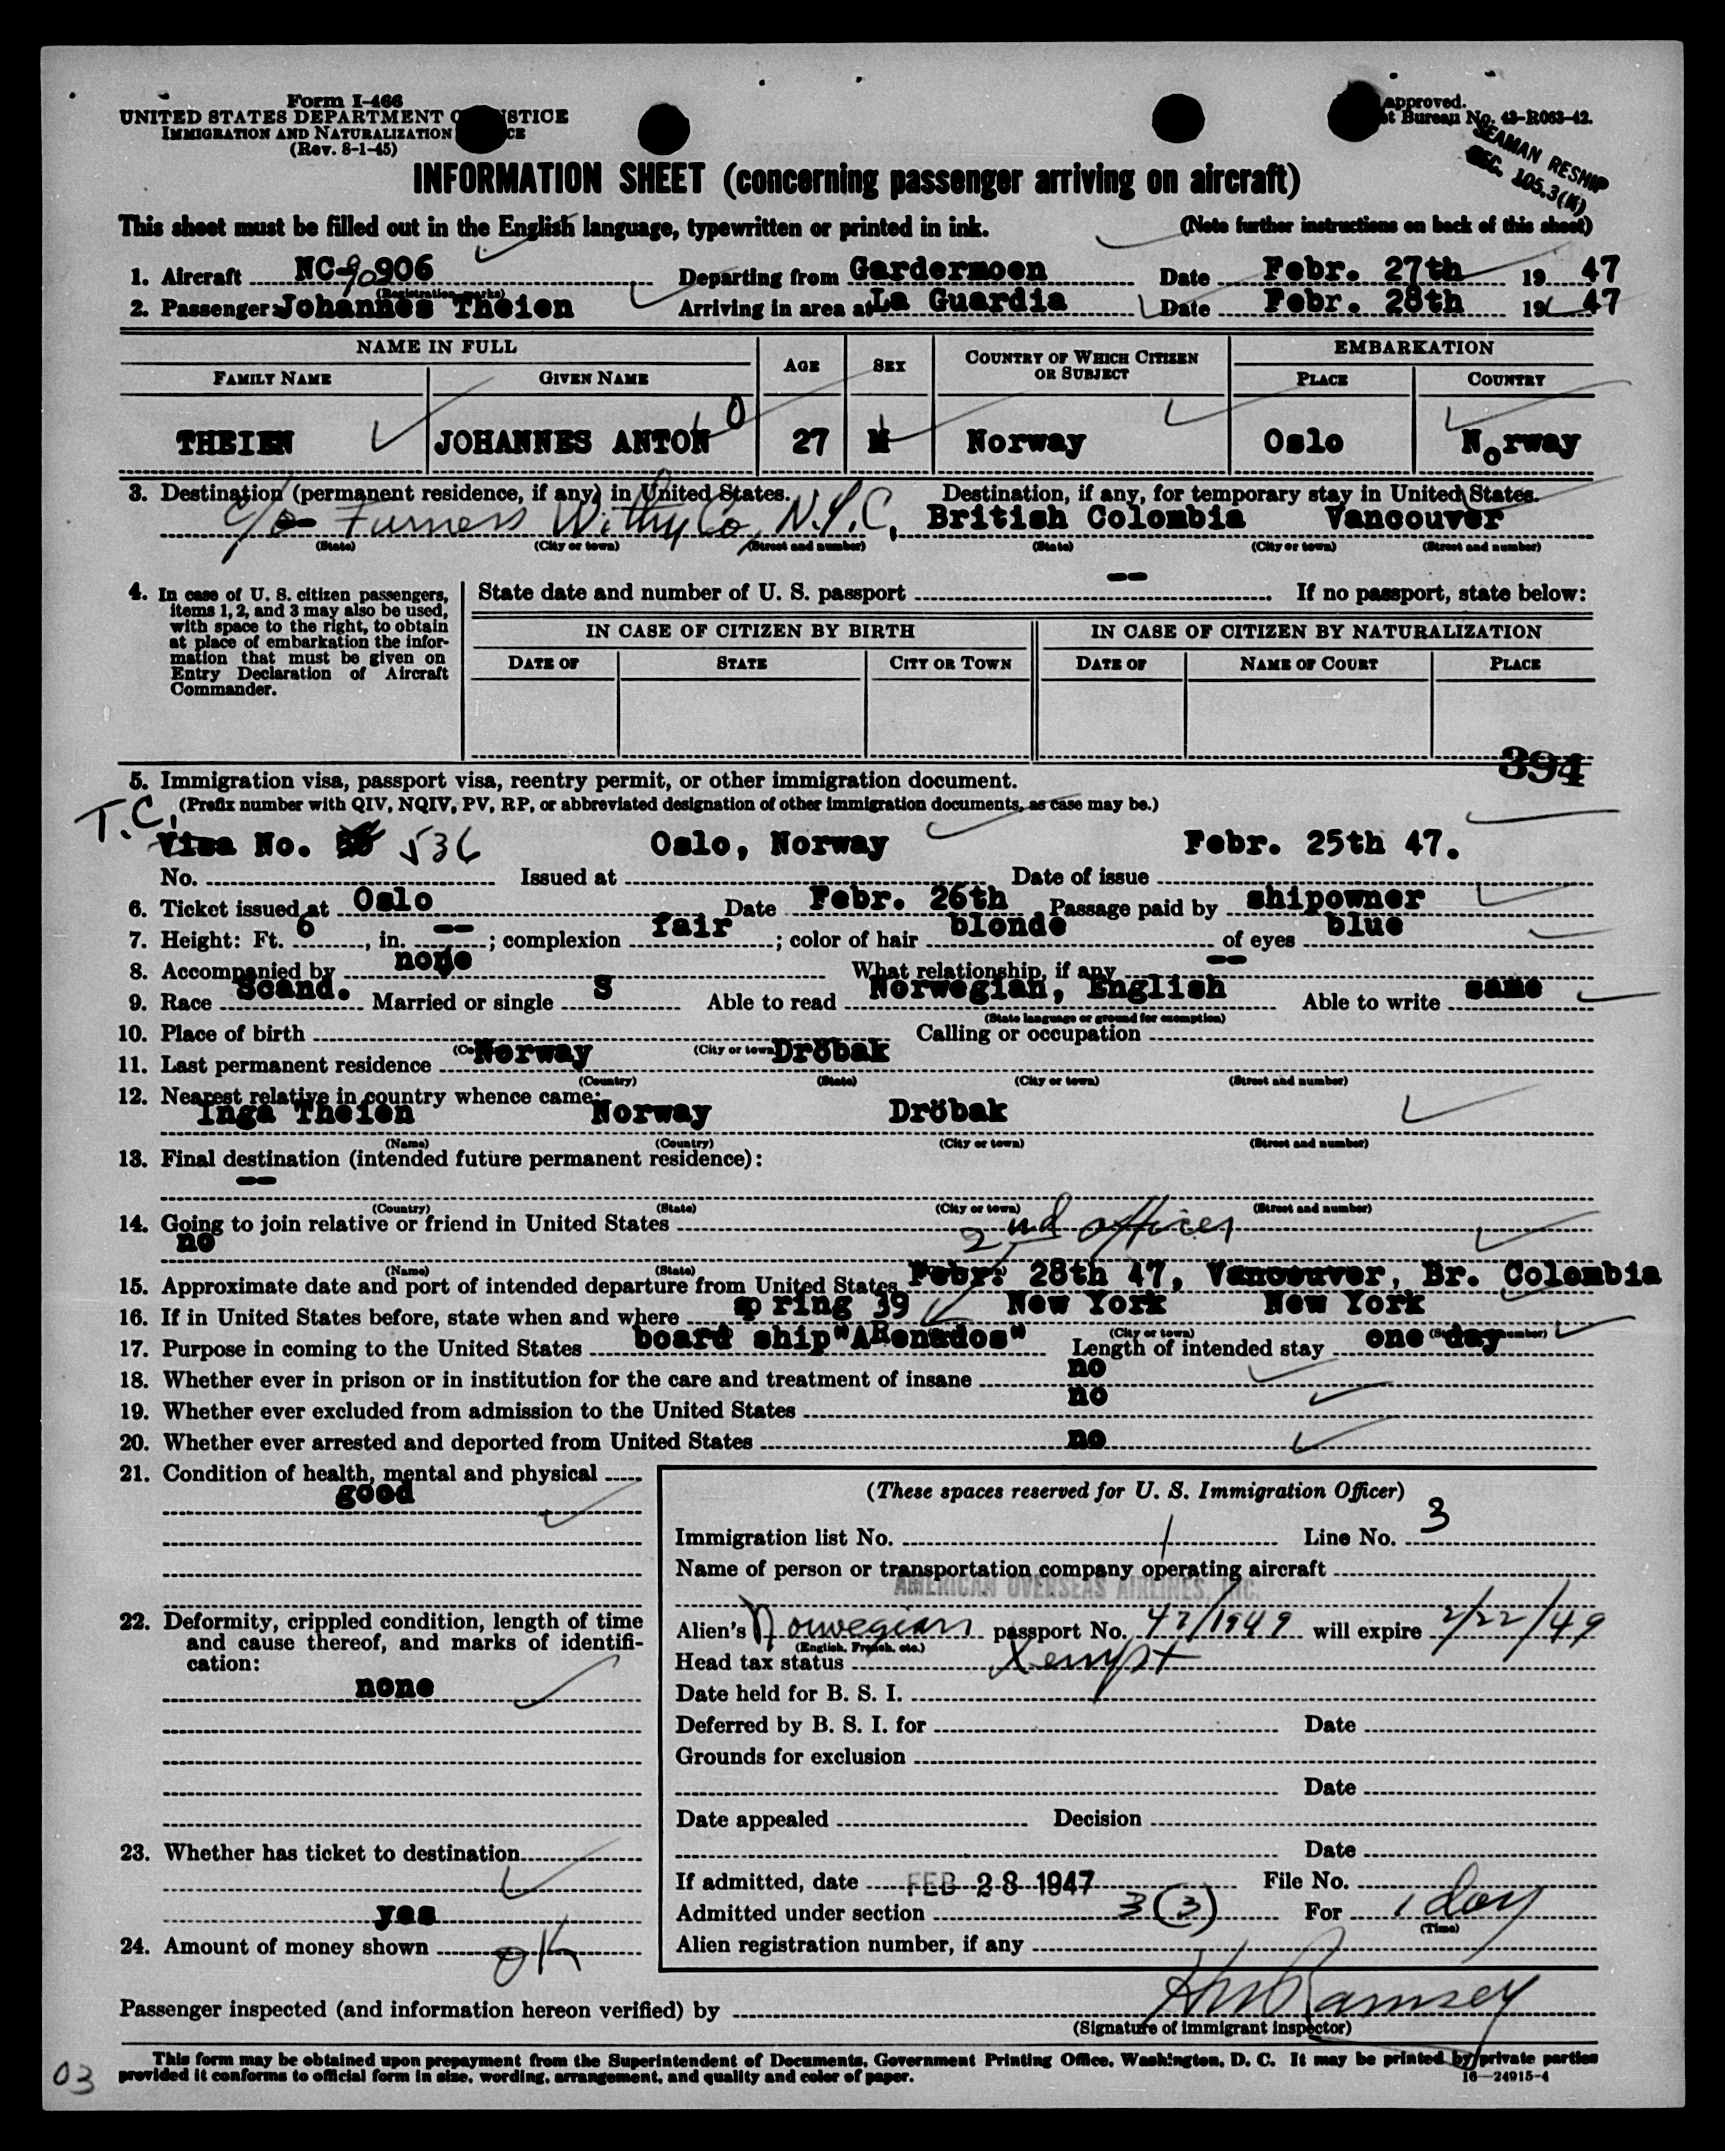 Form I-466
UNITED STATES DEPARTMENT OF JUSTICE
IMMIGRATION AND NATURALIZATION SERVICE
(Rev. 8-1-45)
approved.
Bureau No. 43-R063-42.
SEAMAN RESHIP
SEC. 105.3(N)
INFORMATION SHEET (concerning passenger arriving on aircraft)
This sheet must be filled out in the English language, typewritten or printed in ink. (Note further instructions on back of this sheet)
1. Aircraft NC-90906 Departing from Gardermoen Date Febr. 27th 1947
(Registration marks)
2. Passenger Johannes Theien Arriving in area at La Guardia Date Febr. 28th 1947
NAME IN FULL AGE SEX COUNTRY OF WHICH CITIZEN OR SUBJECT EMBARKATION
FAMILY NAME GIVEN NAME PLACE COUNTRY
THEIEN JOHANNES ANTON 0 27 M Norway Oslo Norway
3. Destination (permanent residence, if any) in United States. Destination, if any, for temporary stay in United States.
c/o Furness Withy Co, N.Y.C. British Colombia Vancouver
(State) (City or town) (Street and number) (State) (City or town) (Street and number)
4. In case of U. S. citizen passengers, items 1, 2, and 3 may also be used, with space to the right, to obtain at place of embarkation the information that must be given on Entry Declaration of Aircraft Commander.
State date and number of U. S. passport -- If no passport, state below:
IN CASE OF CITIZEN BY BIRTH IN CASE OF CITIZEN BY NATURALIZATION
DATE OF STATE CITY OR TOWN DATE OF NAME OF COURT PLACE
394
5. Immigration visa, passport visa, reentry permit, or other immigration document.
(Prefix number with QIV, NQIV, PV, RP, or abbreviated designation of other immigration documents, as case may be.)
T.C. Visa No. 536 Oslo, Norway Febr. 25th 47.
No. Issued at Date of issue
6. Ticket issued at Oslo Date Febr. 26th Passage paid by shipowner
7. Height: Ft. 6, in. --; complexion fair; color of hair blonde of eyes blue
8. Accompanied by none What relationship, if any --
9. Race Scand. Married or single S Able to read Norwegian, English Able to write same
(State language or ground for exemption)
10. Place of birth Calling or occupation
Norway (City or town) Dröbak
11. Last permanent residence
(Country) (State) (City or town) (Street and number)
12. Nearest relative in country whence came:
Inga Theien Norway Dröbak
(Name) (Country) (City or town) (Street and number)
13. Final destination (intended future permanent residence):
--
(Country) (State) (City or town) (Street and number)
14. Going to join relative or friend in United States 2nd officer
no
(Name) (State)
15. Approximate date and port of intended departure from United States Febr. 28th 47, Vancouver, Br. Colombia
16. If in United States before, state when and where spring 39 New York New York
(City or town)
17. Purpose in coming to the United States board ship "ARenados" Length of intended stay one day
18. Whether ever in prison or in institution for the care and treatment of insane no
19. Whether ever excluded from admission to the United States no
20. Whether ever arrested and deported from United States no
21. Condition of health, mental and physical
good
22. Deformity, crippled condition, length of time and cause thereof, and marks of identification:
none
23. Whether has ticket to destination
yes
24. Amount of money shown OK
(These spaces reserved for U. S. Immigration Officer)
Immigration list No. 1 Line No. 3
Name of person or transportation company operating aircraft
AMERICAN OVERSEAS AIRLINES, INC.
Alien's Norwegian passport No. 47/1949 will expire 2/22/49
(English, French, etc.)
Head tax status Xempt
Date held for B. S. I.
Deferred by B. S. I. for Date
Grounds for exclusion
Date
Date appealed Decision
Date
If admitted, date FEB 28 1947 File No.
Admitted under section 3(3) For 1 day
(Time)
Alien registration number, if any
Passenger inspected (and information hereon verified) by Ramsey
(Signature of immigrant inspector)
This form may be obtained upon prepayment from the Superintendent of Documents, Government Printing Office, Washington, D. C. It may be printed by private parties
provided it conforms to official form in size, wording, arrangement, and quality and color of paper.
16—24915-4
03